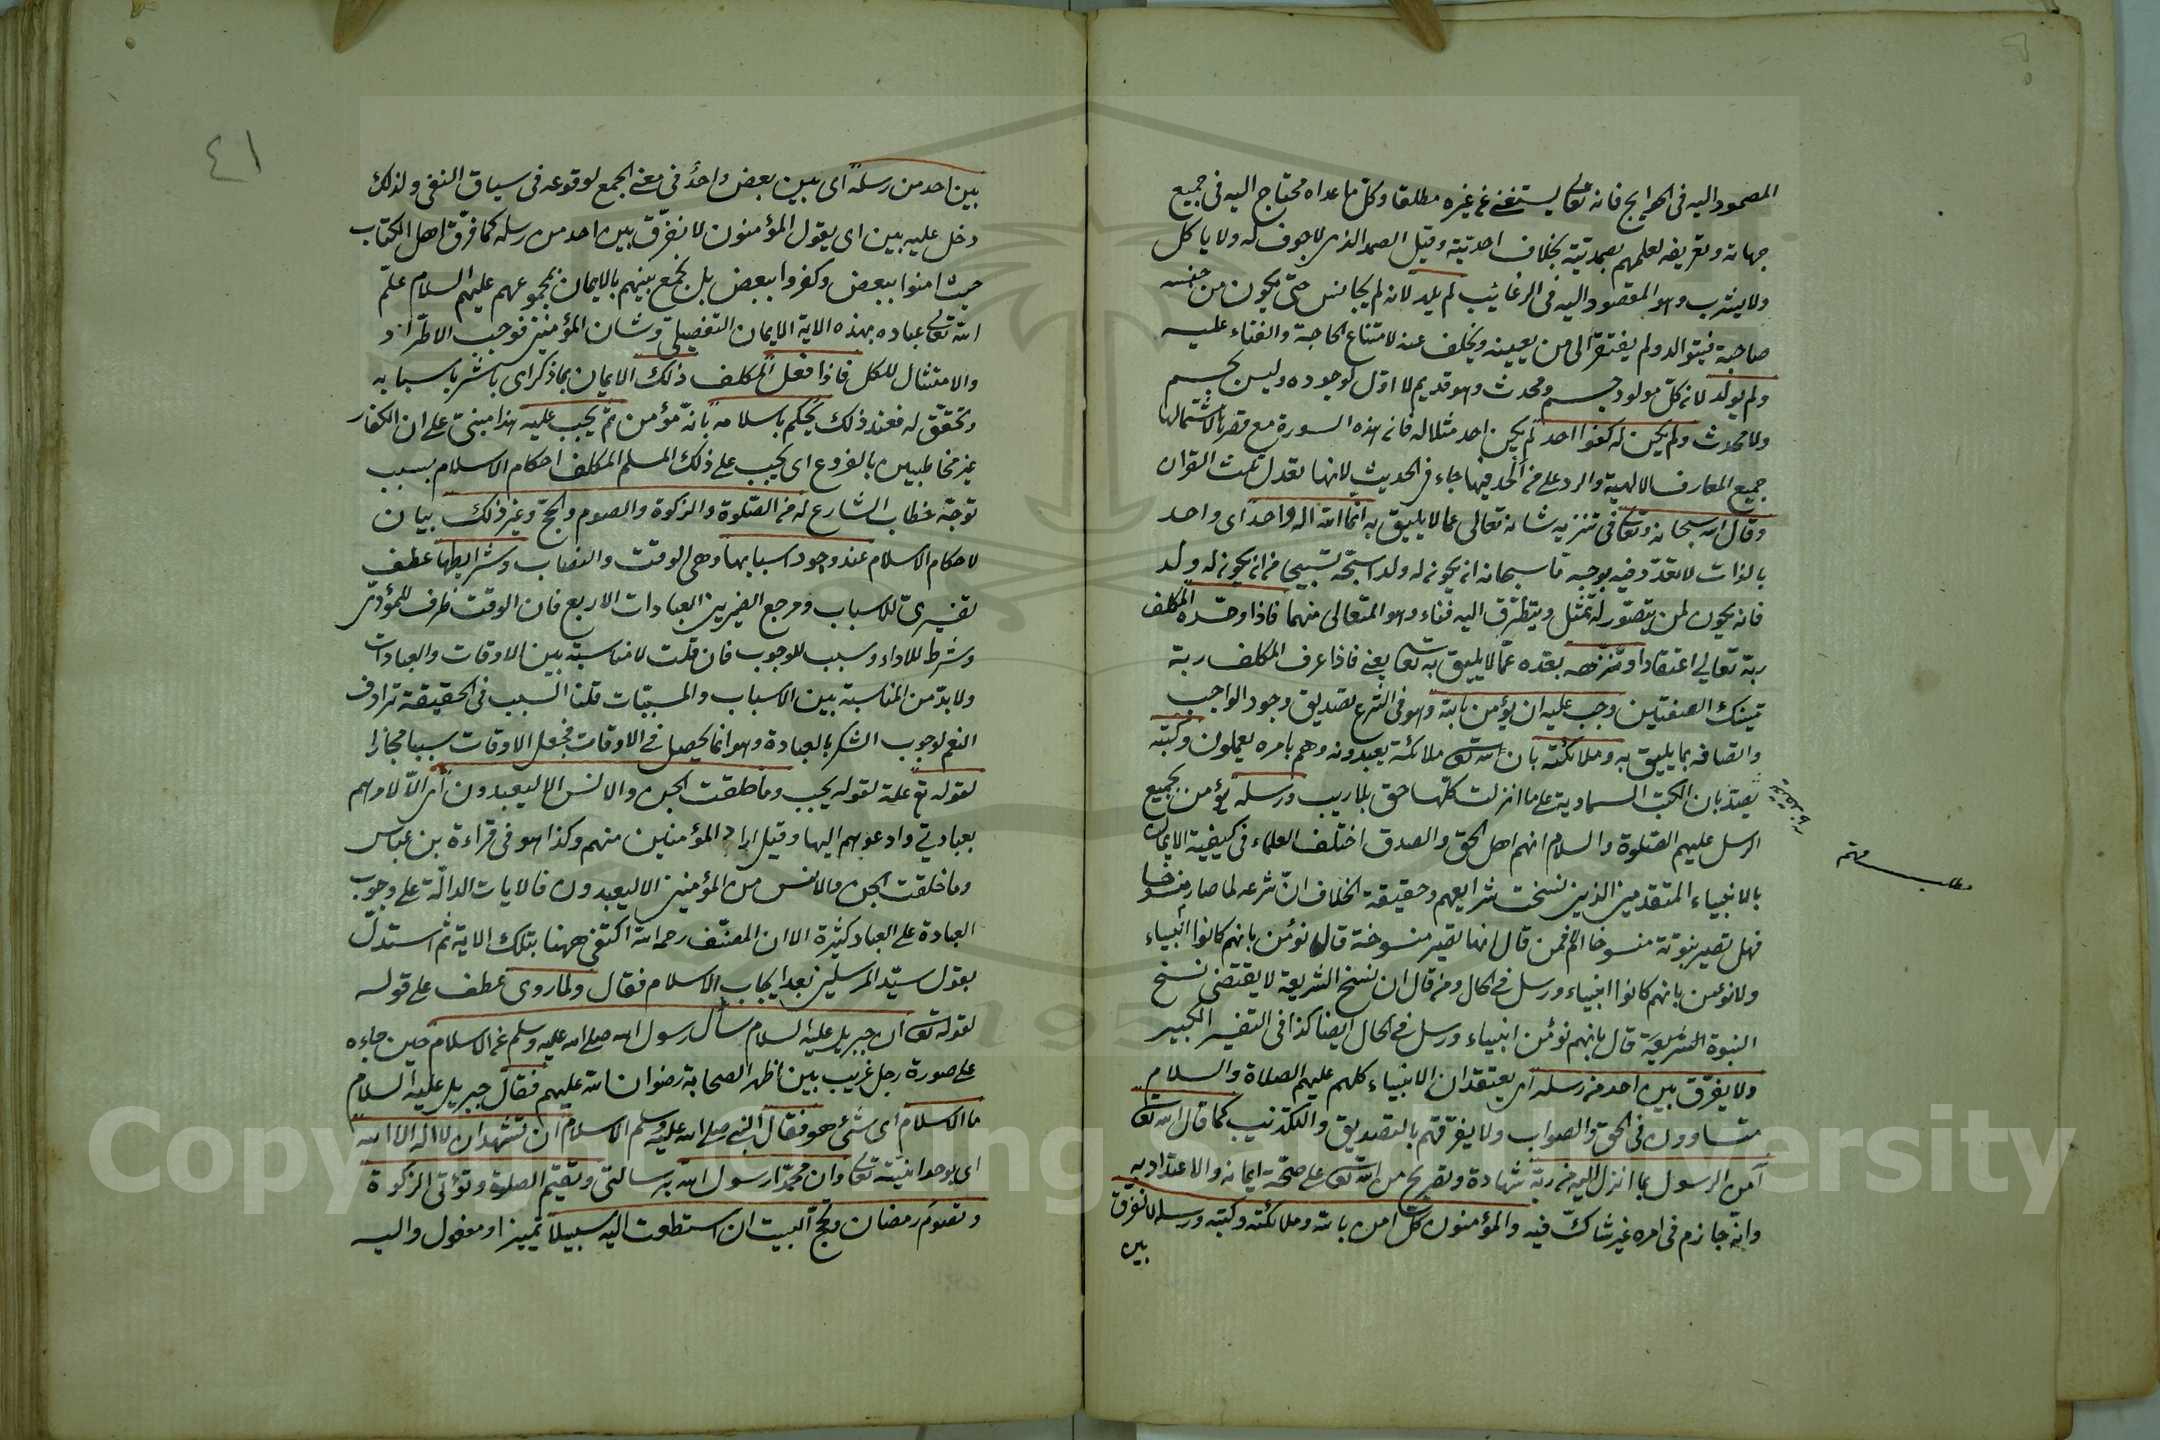 المصمود اليه في الحوايج فانه تعالى يستغني عن غيره مطلقا وكل ما عداه محتاج اليه في جميع
جهاته وتعريفه لعلمهم بصمديته بخلاف احديته وقيل الصمد الذي لا جوف له ولا ياكل
ولا يشرب وهو المقصود اليه في الرغائب لم يلد لانه لم يجانس حتى يكون من جنسه
صاحبة فيتوالد ولم يفتقر الى من يعينه ويخلف عنه لامتناع الحاجة والفناء عليه
ولم يولد لانه كل مولود جسم ومحدث وهو قديم لا اول لوجوده وليس بجسم
ولا محدث ولم يكن له كفوا احد لم يكن احد مثلا له فانه هذه السورة مع قصرها لاشتمالها
جميع المعارف الالهية والرد على من الحد فيها جاء في الحديث لانها تعدل ثلث القران
وقال الله سبحانه وتعالى في تنزيه شانه تعالى عما لا يليق به انما الله اله واحد اى واحد
بالذات لا تعدد فيه بوجه ما سبحانه ان يكون له ولد اسبحه تسبيحا من ان يكون له ولد
فانه يكون لمن يتصور له مثل ويتطرق اليه فناء وهو المتعالى منهما فاذا وحده المكلف
ربه تعالى اعتقادا ونزهه بعده عما لا يليق به تعالى يعني فاذا عرف المكلف ربه
بتينك الصفتين وجب عليه ان يؤمن بالله وهو في الشرع تصديق وجود الواجب
واتصافه بما يليق به وملائكته بان لله تعالى ملائكة يعبدونه وهم بامره يعملون وكتبه
بان الكتب السماوية على ما انزلت كلها حق بلا ريب ورسله يؤمن بجميع
الرسل عليهم الصلوة والسلام انهم اهل الحق والصدق اختلف العلماء في كيفية الايمان
بالانبياء المتقدمين الذين نسخت شرايعهم وحقيقة الخلاف ان شرعه لما صار منسوخا
فهل تصير نبوته منسوخا ام لا فمن قال انها تصير منسوخة قال نؤمن بانهم كانوا انبياء
ولا نؤمن بانهم كانوا انبياء ورسل في الحال ومن قال ان نسخ الشريعة لا يقتضي نسخ
النبوة الشريعة قال بانهم نؤمن انبياء ورسل في الحال ايضا كذا في التفسير الكبير
ولا يفرق بين احد من رسله اى يعتقد ان الانبياء كلهم عليهم الصلاة والسلام
متساوون في الحق والصواب ولا يفرقهم بالتصديق والتكذيب كما قال الله تعالى
آمن الرسول بما انزل اليه من ربه شهادة وتصريح من الله تعالى على صحة ايمانه والاعتداد به
وانه جازم في امره غير شاك فيه والمؤمنون كل امن بالله وملائكته وكتبه ورسله لا نفرق
بين
مطلب مهم
٤١
بين احد من رسله اى بين بعض واحد في معنى الجمع لوقوعه في سياق النفي ولذلك
دخل عليه بين اى يقول المؤمنون لا نفرق بين احد من رسله كما فرق اهل الكتاب
حيث امنوا ببعض وكفروا ببعض بل نجمع بينهم بالايمان بمجموعهم عليهم السلام علم
الله تعالى عباده بهذه الاية الايمان التفصيلي وشان المؤمنين فوجب الاطراد
والامتثال للكل فاذا فعل المكلف ذلك الايمان بما ذكر اى باشر باسبابه
وتحقق له فعند ذلك يحكم باسلامه بانه مؤمن ثم يجب عليه هذا مبني على ان الكفار
غير مخاطبين بالفروع اى يجب على ذلك المسلم المكلف احكام الاسلام بسبب
توجه خطاب الشارع له من الصلوة والزكوة والصوم والحج وغير ذلك بيان
لاحكام الاسلام عند وجود اسبابها وهي الوقت والنصاب وشرايطها عطف
تفسيري للاسباب ومرجع الضميرين العبادات الاربع فان الوقت ظرف للمؤدى
وشرط للاداء وسبب للوجوب فان قلت لا مناسبة بين الاوقات والعبادات
ولا بد من المناسبة بين الاسباب والمسببات قلنا السبب في الحقيقة ترادف
النعم لوجوب الشكر بالعبادة وهو انما يحصل في الاوقات فجعل الاوقات سببا مجازا
لقوله تع علة لقوله يجب وما خلقت الجن والانس الا ليعبدون اى الا لامرهم
بعبادتي وادعوهم اليها وقيل اراد المؤمنين منهم وكذا هو في قراءة بن عباس
وما خلقت الجن والانس من المؤمنين الا ليعبدون فالايات الدالة على وجوب
العبادة على العباد كثيرة الا ان المصنف رحمه الله اكتفى ههنا بتلك الاية ثم استدل
بقول سيد المرسلين بعد ايجاب الاسلام فقال ولما روى عطف على قوله
لقوله تعالى ان جبريل عليه السلام سأل رسول الله صلى الله عليه وسلم عن الاسلام حين جاءه
على صورة رجل غريب بين اظهر الصحابة رضوان الله عليهم فقال جبريل عليه السلام
ما الاسلام اى شئ هو فقال النبي صلى الله عليه وسلم الاسلام ان تشهد ان لا اله الا الله
اى بوحدانيته تعالى وان محمدا رسول الله برسالتي وتقيم الصلوة وتؤتى الزكوة
وتصوم رمضان وتحج البيت ان استطعت اليه سبيلا تمييز او مفعول واليه
Copyright © King Saud University